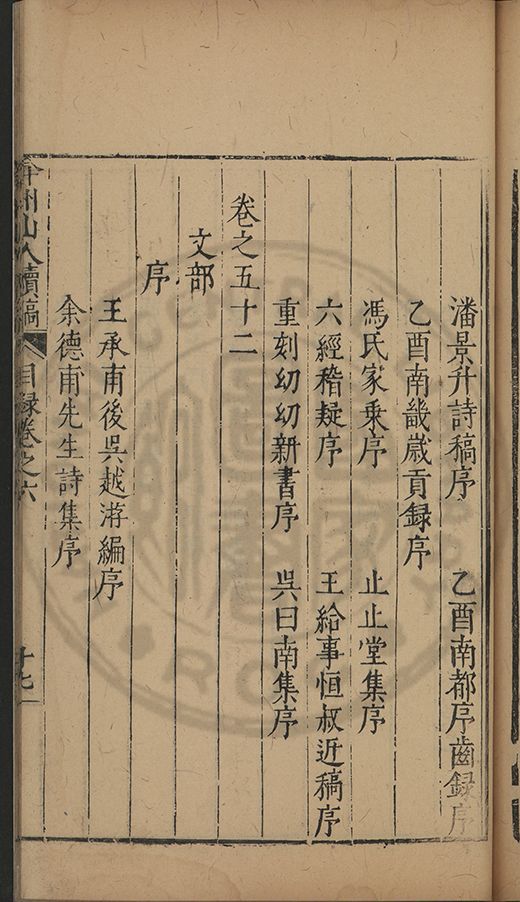 潘景升詩稿序　乙酉南都序齒録序
乙酉南畿歲貢録序
馮氏家乗序　止止堂集序
六經稽疑序　王給事恒叔近稿序
重刻幼幼新書序　吳曰南集序
卷之五十二
文部
序
王承甫後吳越游編序
余德甫先生詩集序
弇州山人續稿　目録卷之六　十七